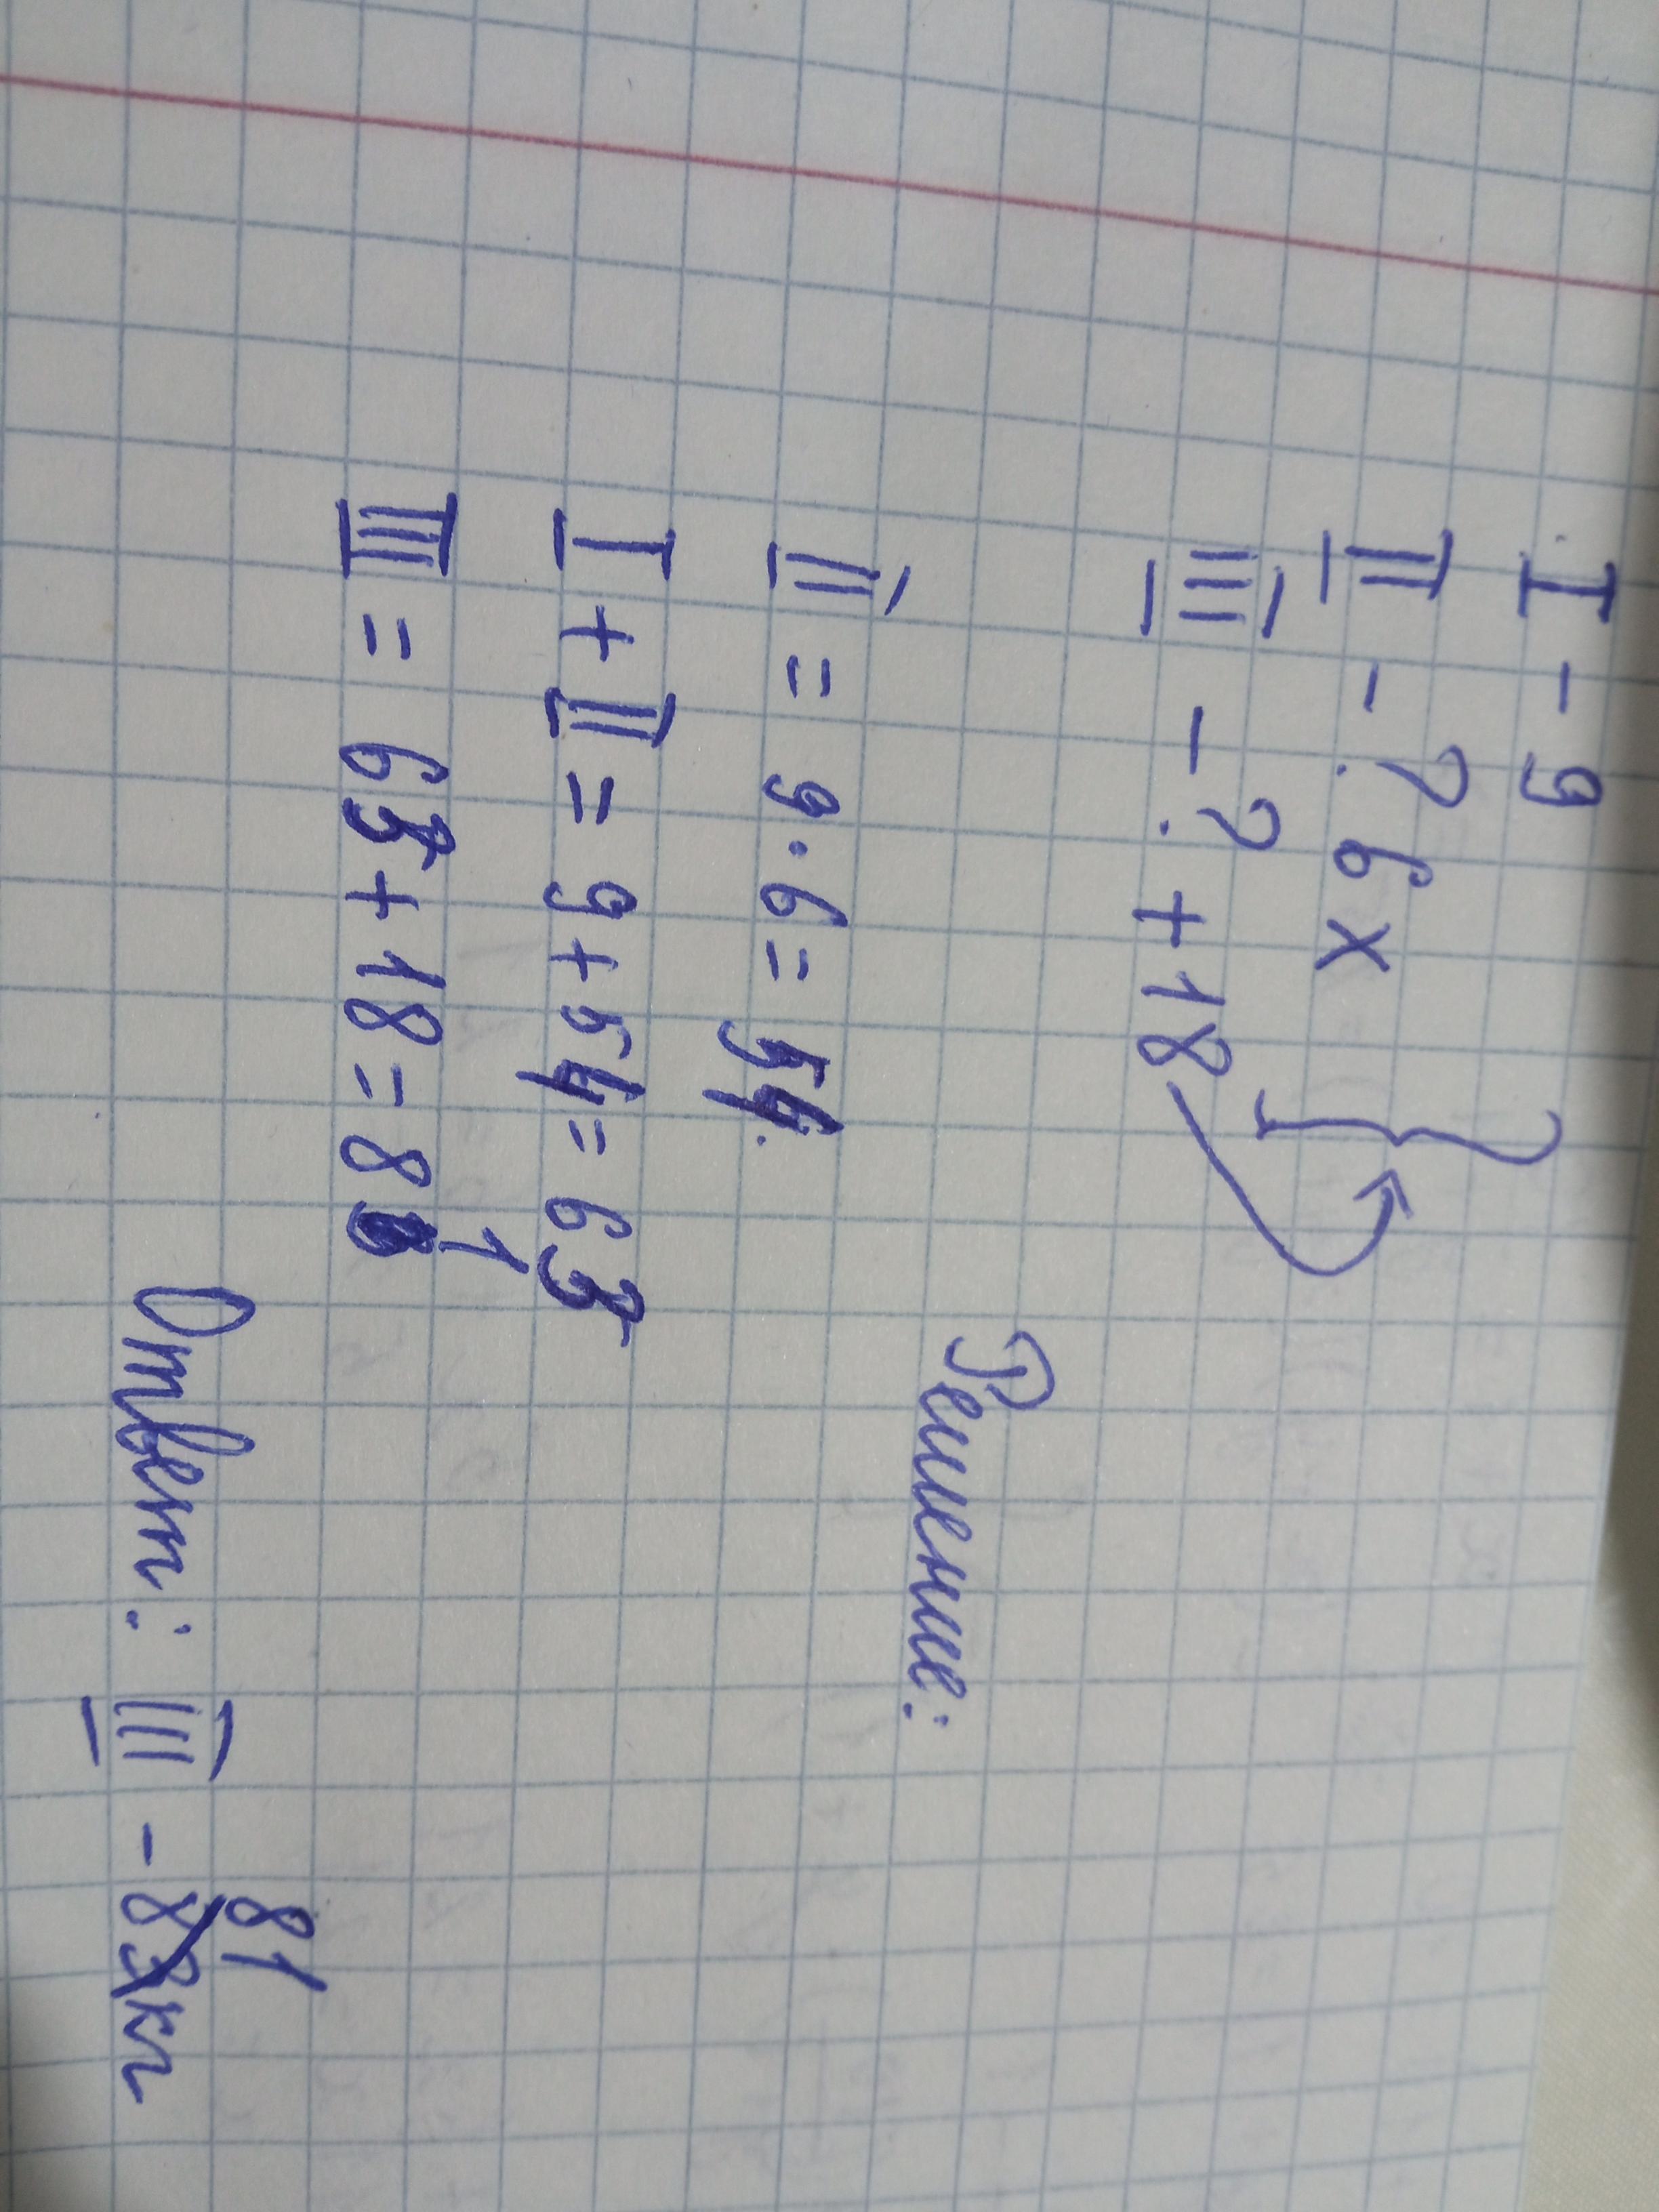 I - 9
II - ? 6 x
III - ? + 18
Решение:
II = 9 · 6 = 54.
I + II = 9 + 54 = 63
III = 63 + 18 = 81
Ответ: III - 81 кг